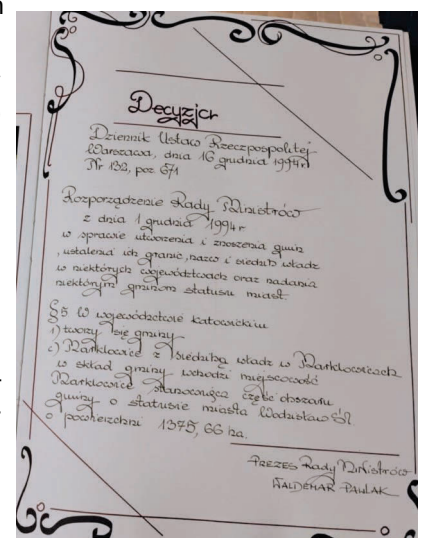 Decyzja
Dziennik Ustaw Rzeczpospolitej
Warszawa, dnia 16 grudnia 1994r
Nr 132, poz 671
Rozporządzenie Rady Ministrów
z dnia 1 grudnia 1994r
w sprawie utworzenia i znoszenia gmin
, ustalenia ich granic, nazw i siedzib władz
w niektórych województwach oraz nadania
niektórym gminom statusu miast.
§ 5 W województwie katowickim
1) tworzy się gminy
c) Marklowice z siedzibą władz w Marklowicach
w skład gminy wchodzi miejscowość
Marklowice stanowiąca część obszaru
gminy o statusie miasta Wodzisław Śl.
o powierzchni 1375,66 ha.
PREZES Rady Ministrów
WALDEMAR PAWLAK